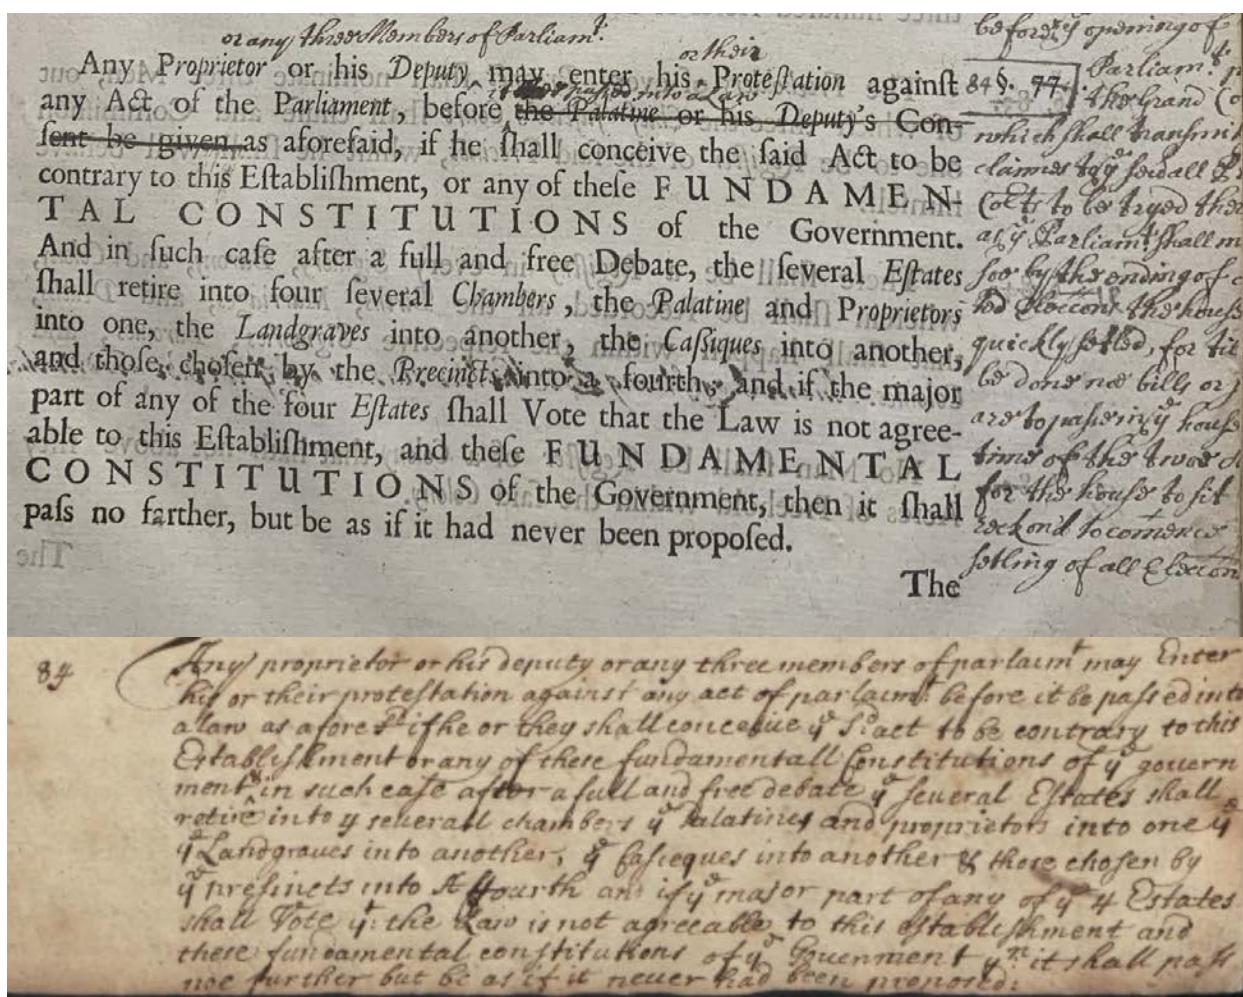 or any three Members of Parliamt.
or their
Any Proprietor or his Deputy may enter his Proteſtation againſt
it be paſſed into a Law
any Act of the Parliament, before the Palatine or his Deputy's Con-
ſent be given as aforeſaid, if he ſhall conceive the ſaid Act to be
contrary to this Eſtabliſhment, or any of theſe FUNDAMEN-
TAL CONSTITUTIONS of the Government.
And in ſuch caſe after a full and free Debate, the ſeveral Eſtates
ſhall retire into four ſeveral Chambers, the Palatine and Proprietors
into one, the Landgraves into another, the Caſſiques into another,
and thoſe choſen by the Precincts into a fourth, and if the major
part of any of the four Eſtates ſhall Vote that the Law is not agree-
able to this Eſtabliſhment, and theſe FUNDAMENTAL
CONSTITUTIONS of the Government, then it ſhall
paſs no farther, but be as if it had never been propoſed.
The
before ye opening of
84 §. 77.
Parliamt.
the Grand Co
which ſhall tranſmit
claimes to ye
to be tryed
as ye Parliamt. ſhall m
by the ending of
the houſe
quickly ſetled, for
be done noe bills or
are to paſſe in ye houſe
time of the two
for the houſe to ſit
reckond to comence
ſetling of all Eleccon
84 Any proprietor or his deputy or any three members of parlaimt may Enter
his or their proteſtation against any act of parlaimt. before it be paſſed into
a law as aforesd if he or they shall conceue ye sd act to be contrary to this
Establiſhment or any of these fundamentall Conſtitutions of ye govern
ment in such case after a full and free debate ye ſeueral Eſtates shall
retire into 4 seuerall chambers ye Palatines and proprietors into one ye
ye Landgraues into another, ye caſseques into another & those chosen by
ye presincts into A ffourth and if ye major part of any of ye 4 Estates
shall Vote yt the Law is not agreeable to this eſtabliſhment and
these fundamental conſtitutions of ye Gouernment yn it shall paſſ
noe further but be as if it never had been proposed.